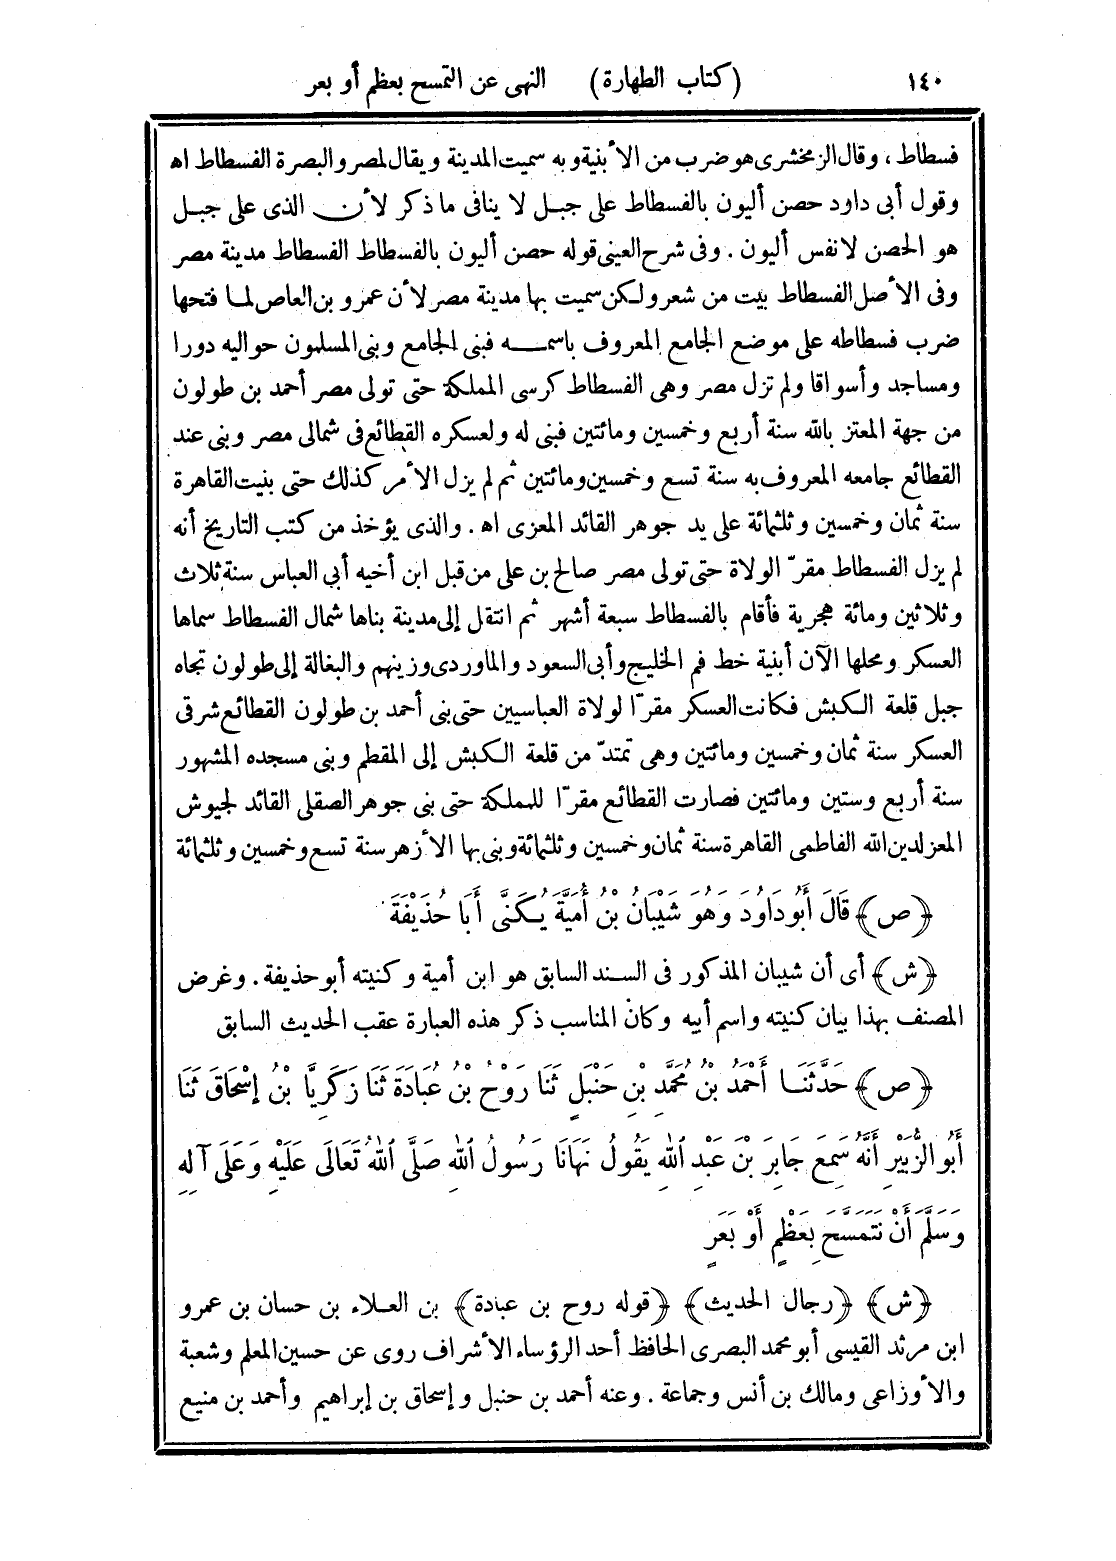 ١٤٠ (كتاب الطهارة) النهى عن التمسح بعظم أو بعر
فسطاط ، وقال الزمخشرى هو ضرب من الأبنية وبه سميت المدينة ويقال لمصر والبصرة الفسطاط اه
وقول أبى داود حصن أليون بالفسطاط على جبل لا ينافى ما ذكر لأن الذى على جبل
هو الحصن لا نفس أليون . وفى شرح العينى قوله حصن أليون بالفسطاط الفسطاط مدينة مصر
وفى الأصل الفسطاط بيت من شعر ولكن سميت بها مدينة مصر لأن عمرو بن العاص لما فتحها
ضرب فسطاطه على موضع الجامع المعروف باسمه فبنى الجامع وبنى المسلمون حواليه دورا
ومساجد وأسواقا ولم تزل مصر وهى الفسطاط كرسى المملكة حتى تولى مصر أحمد بن طولون
من جهة المعتز بالله سنة أربع وخمسين ومائتين فبنى له ولعسكره القطائع فى شمالى مصر وبنى عند
القطائع جامعه المعروف به سنة تسع وخمسين ومائتين ثم لم يزل الأمر كذلك حتى بنيت القاهرة
سنة ثمان وخمسين وثلثمائة على يد جوهر القائد المعزى اه . والذى يؤخذ من كتب التاريخ أنه
لم يزل الفسطاط مقرّ الولاة حتى تولى مصر صالح بن على من قبل ابن أخيه أبي العباس سنة ثلاث
وثلاثين ومائة هجرية فأقام بالفسطاط سبعة أشهر ثم انتقل إلى مدينة بناها شمال الفسطاط سماها
العسكر ومحلها الآن أبنية خط فم الخليج وأبى السعود والماوردى وزينهم والبغالة إلى طولون تجاه
جبل قلعة الكبش فكانت العسكر مقرّا لولاة العباسيين حتى بنى أحمد بن طولون القطائع شرقى
العسكر سنة ثمان وخمسين ومائتين وهى تمتدّ من قلعة الكبش إلى المقطم وبنى مسجده المشهور
سنة أربع وستين ومائتين فصارت القطائع مقرّا للمملكة حتى بنى جوهر الصقلى القائد لجيوش
المعز لدين الله الفاطمى القاهرة سنة ثمان وخمسين وثلثمائة وبنى بها الأزهر سنة تسع وخمسين وثلثمائة
﴿ص﴾ قَالَ أَبُو دَاوُدَ وَهُوَ شَيْبَانُ بْنُ أُمَيَّةَ يُكَنَّى أَبَا حُذَيْفَةَ
﴿ش﴾ أى أن شيبان المذكور فى السند السابق هو ابن أمية وكنيته أبو حذيفة . وغرض
المصنف بهذا بيان كنيته واسم أبيه وكان المناسب ذكر هذه العبارة عقب الحديث السابق
﴿ص﴾ حَدَّثَنَا أَحْمَدُ بْنُ مُحَمَّدِ بْنِ حَنْبَلٍ ثَنَا رَوْحُ بْنُ عُبَادَةَ ثَنَا زَكَرِيَّا بْنُ إِسْحَاقَ ثَنَا
أَبُو الزُّبَيْرِ أَنَّهُ سَمِعَ جَابِرَ بْنَ عَبْدِ اللهِ يَقُولُ نَهَانَا رَسُولُ اللهِ صَلَّى اللهُ تَعَالَى عَلَيْهِ وَعَلَى آلِهِ
وَسَلَّمَ أَنْ نَتَمَسَّحَ بِعَظْمٍ أَوْ بَعَرٍ
﴿ش﴾ ﴿رجال الحديث﴾ ﴿قوله روح بن عبادة﴾ بن العلاء بن حسان بن عمرو
ابن مرثد القيسى أبو محمد البصرى الحافظ أحد الرؤساء الأشراف روى عن حسين المعلم وشعبة
والأوزاعى ومالك بن أنس وجماعة . وعنه أحمد بن حنبل وإسحاق بن إبراهيم وأحمد بن منيع